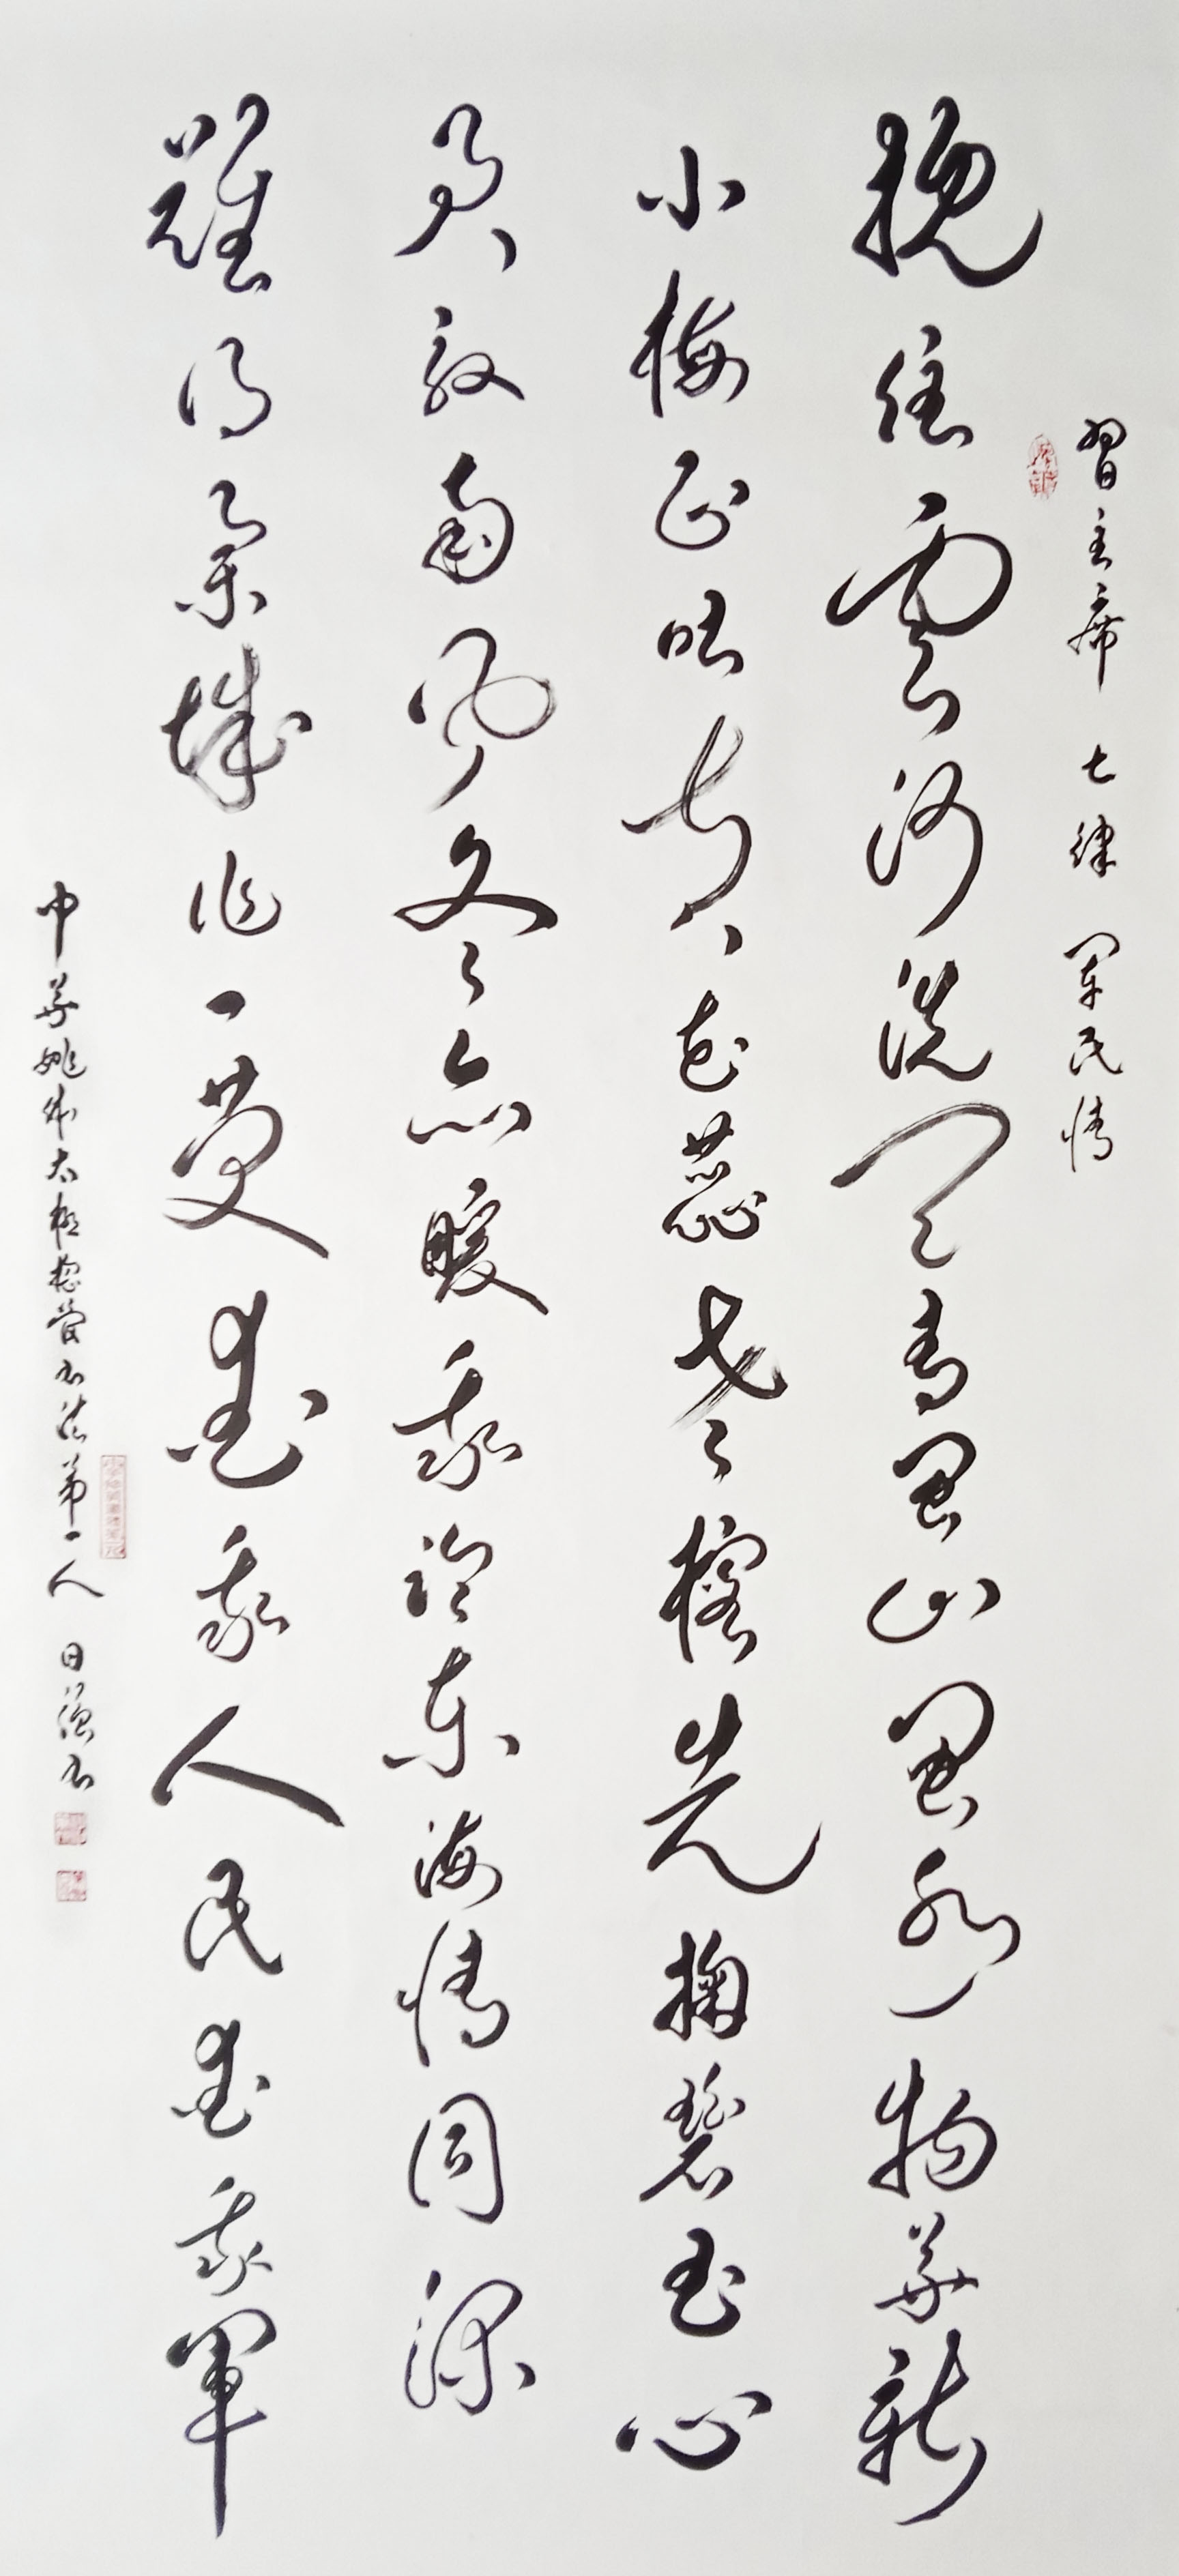 習主席 七律 軍民情
挽住雲河洗天青閩山閩水物華新
小梅正吐黄金蕊老榕先掬碧玉心
君馭南風冬亦暖我臨東海情同深
難得舉城作一慶愛我人民愛我軍
中華姚体太極管書法第一人 日强書